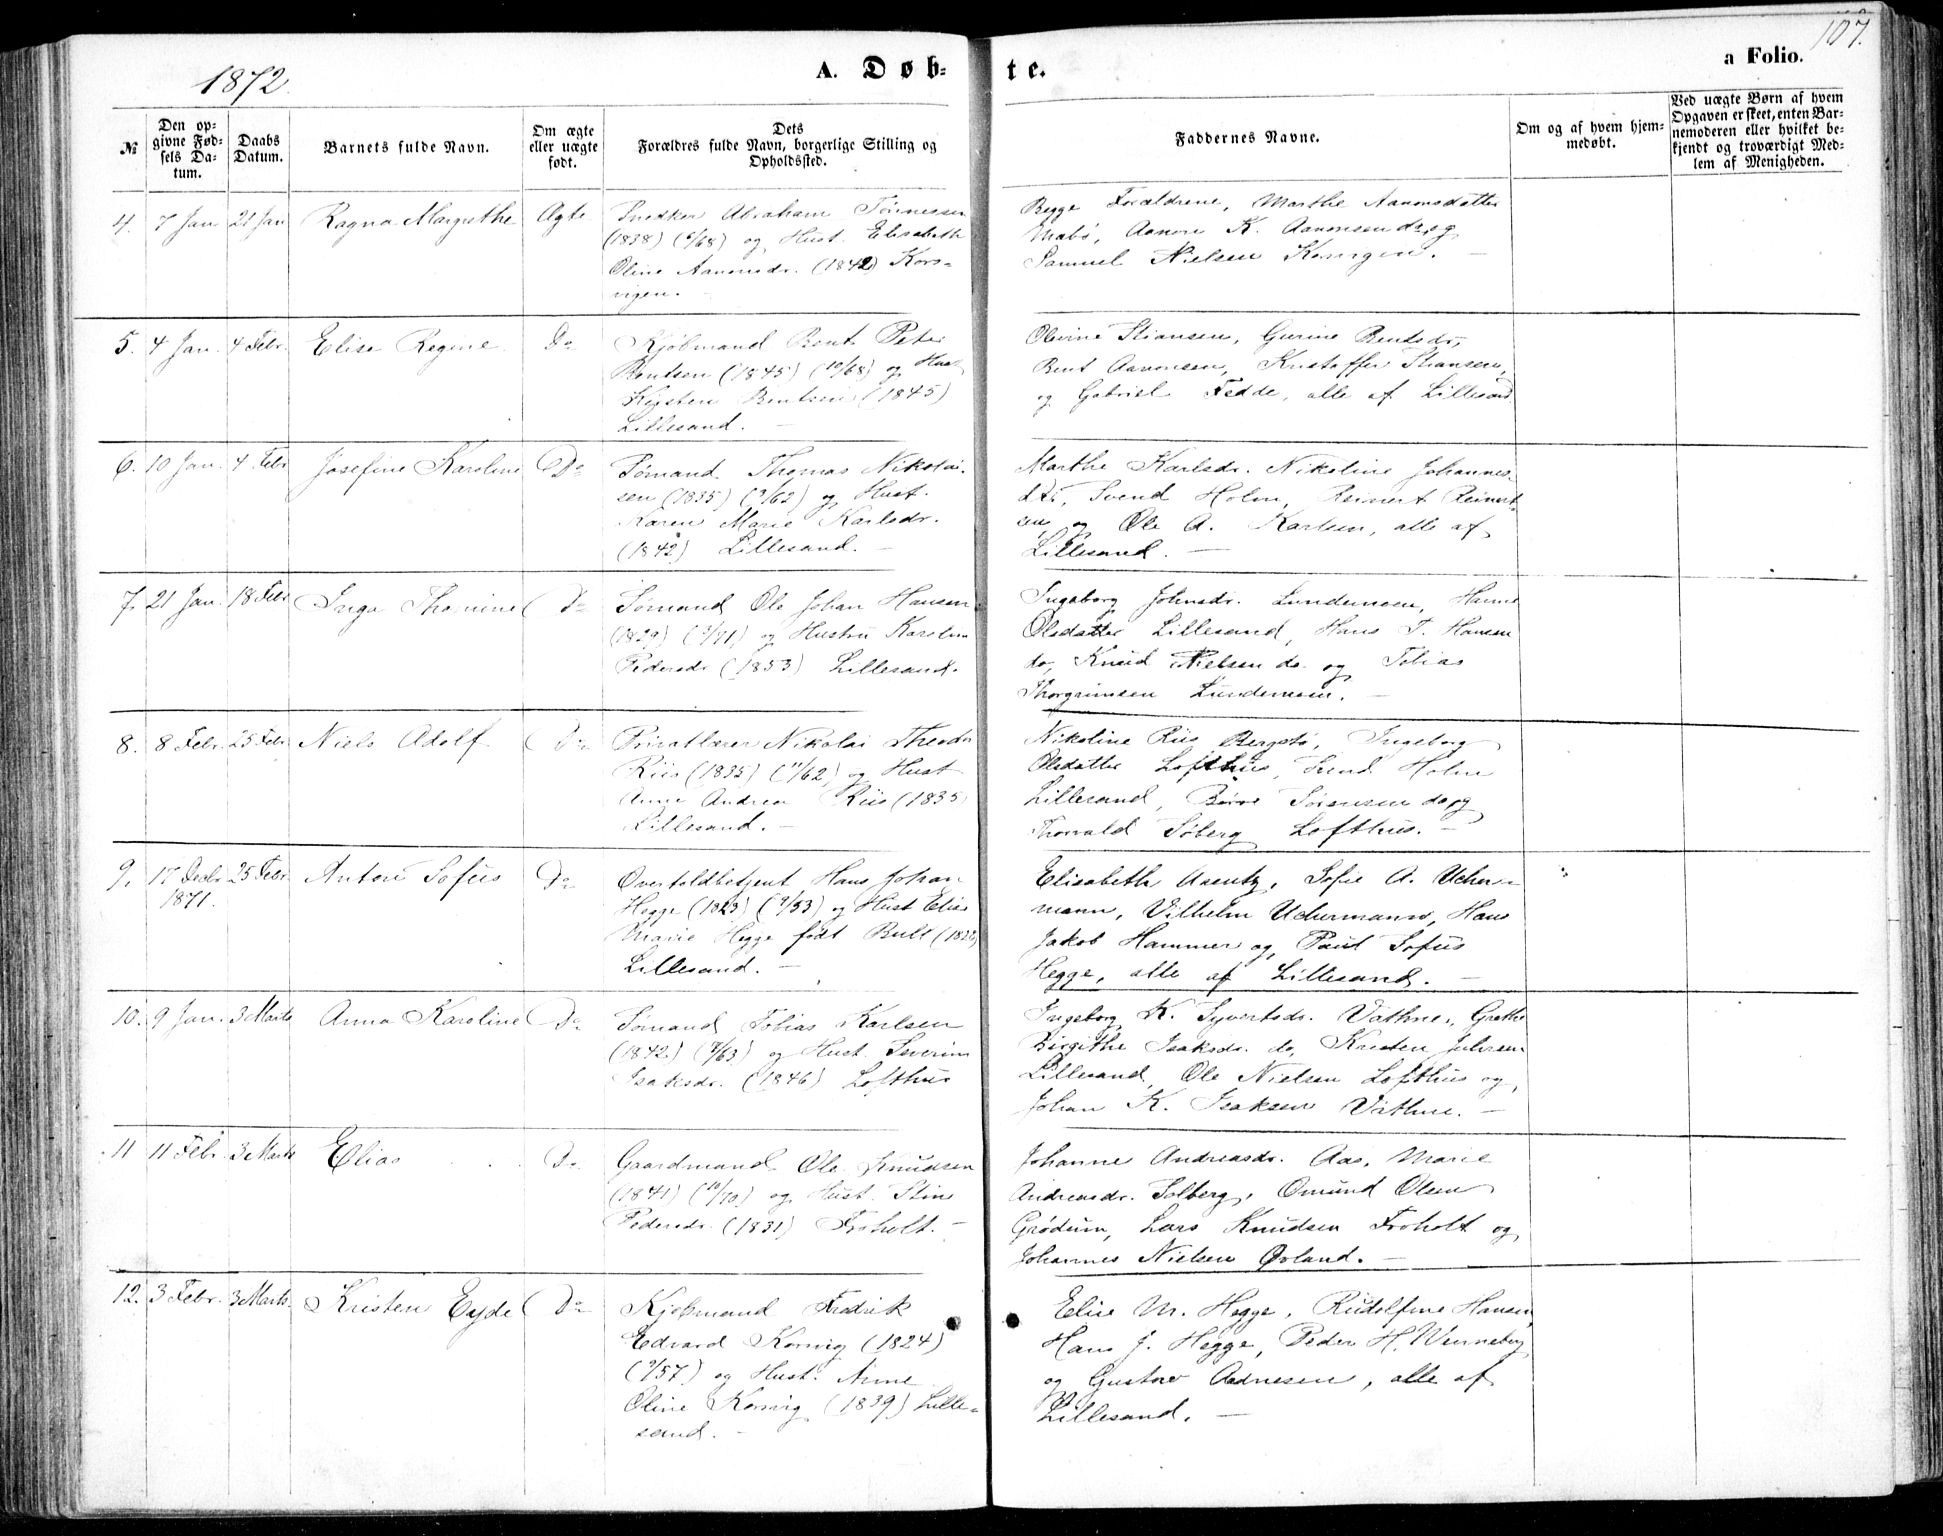 1872
A. Døb-
te.
a Folio.
107.
№
Den op-
givne Fød-
sels Da-
tum.
Daabs
Datum.
Barnets fulde Navn.
Om ægte
eller uægte
født.
Dets
Forældres fulde Navn, borgerlige Stilling og
Opholdssted.
Faddernes Navne.
Om og af hvem hjem-
medøbt.
Ved uægte Børn af hvem
Opgaven er skeet, enten Bar-
nemoderen eller hvilket be-
kjendt og troværdigt Med-
lem af Menigheden.
4. 7 Jan 21 Jan Ragna Margrethe Ægte
Snedker Abraham Tønnessen
(1838) og Hust. Elisabeth
Oline Aanonsdr. (1842) Kors-
vigen.
Begge Forældrene, Marthe Aanonsdatter
Mabø, Aanon K. Aanonsen do, og
Samuel Nielsen
5. 4 Jan. 4 Febr. Elise Regine Do
Kjøbmand Bent Peter
Bentsen (1845) (10/68) og Hust
Kirsten Bentsen (1845)
Lillesand. —
Olevine Stiansen, Gurine Bentsdr,
Bent Aanonsen, Kristoffer Stiansen,
og Gabriel Fedde, alle af Lillesand
6. 10 Jan. 4 Febr Josefine Karoline Do
Sømand Thomas Nikolai-
sen (1835) (9/62) og Hust.
Karen Marie Karlsdr.
(1842) Lillesand. —
Marthe Karlsdr. Nikoline Johannes-
dtr, Svend Holm, Reinert Reinert-
sen, og Ole A. Karlsen, alle af
Lillesand. —
7. 21 Jan. 18 Febr Inga Thomine Do
Sømand Ole Johan Hansen
(1829) og Hustru Karoline
Pedersdr (1853) Lillesand.
Ingeborg Johnsdr. Lundemoen, Hanne
Olsdatter Lillesand, Hans T. Hansen
do, Knud Nielsen do. og Tobias
Thorgrimsen Lundemoen. —
8. 8 Febr. 25 Febr. Niels Adolf Do
Privatlærer Nikolai Theodor
Riis (1835) (11/62) og Hust
Anne Andrea Riis (1835
Lillesand. —
Nikoline Riis Bergstø, Ingeborg
Olsdatter Lofthus, Svend Holm
Lillesand, Børre Sørensen do og
Thorvald Søberg Lofthus. —
9. 17 Decbr 25 Febr. Anton Sofus Do
1871.
Overtoldbetjent Hans Johan
Hegge (1823) (9/53) og Hust Elise
Marie Hegge født Bull
Lillesand. —
Elisabeth Arentz, Sofie A. Ucher-
mann, Vilhelm Uchermann, Hans
Jakob Hammer og, Paul Sofus
Hegge, alle af Lillesand. —
10. 9 Jan. 3 Marts Anna Karoline Do
Sømand Tobias Karlsen
(1842) og Hust. Severine
Isaksdr. (1846) Lofthus
Ingeborg K. Syvertsdr. Vathne, Grethe
Birgithe Isaksdr. do, Kristen Juhlsen
Lillesand, Ole Nielsen Lofthus og,
Johan K. Isaksen Vathne. —
11 11 Febr. 3 Marts Elias Do
Gaardmand Ole Knudsen
(1841) (10/70) og Hust. Stine
Pedersdr. (1831) Froholt. —
Johanne Andreasdr. Aas, Marie
Andreasdr. Solberg, Omund Olsen
Grødum, Lars Knudsen Froholt og
Johannes Nielsen Øvland. —
12. 3 Febr. 3 Marts. Kristen Eyde Do
Kjøbmand Fredrik
Edvard Korsvig (1824)
(9/57) og Hust. Anne
Oline Korsvig (1839) Lille-
sand. —
Elise M. Hegge, Rudolfine Hansen,
Hans J. Hegge, Peder H. Wenneberg
og Gustav Aadnesen, alle af
Lillesand. —